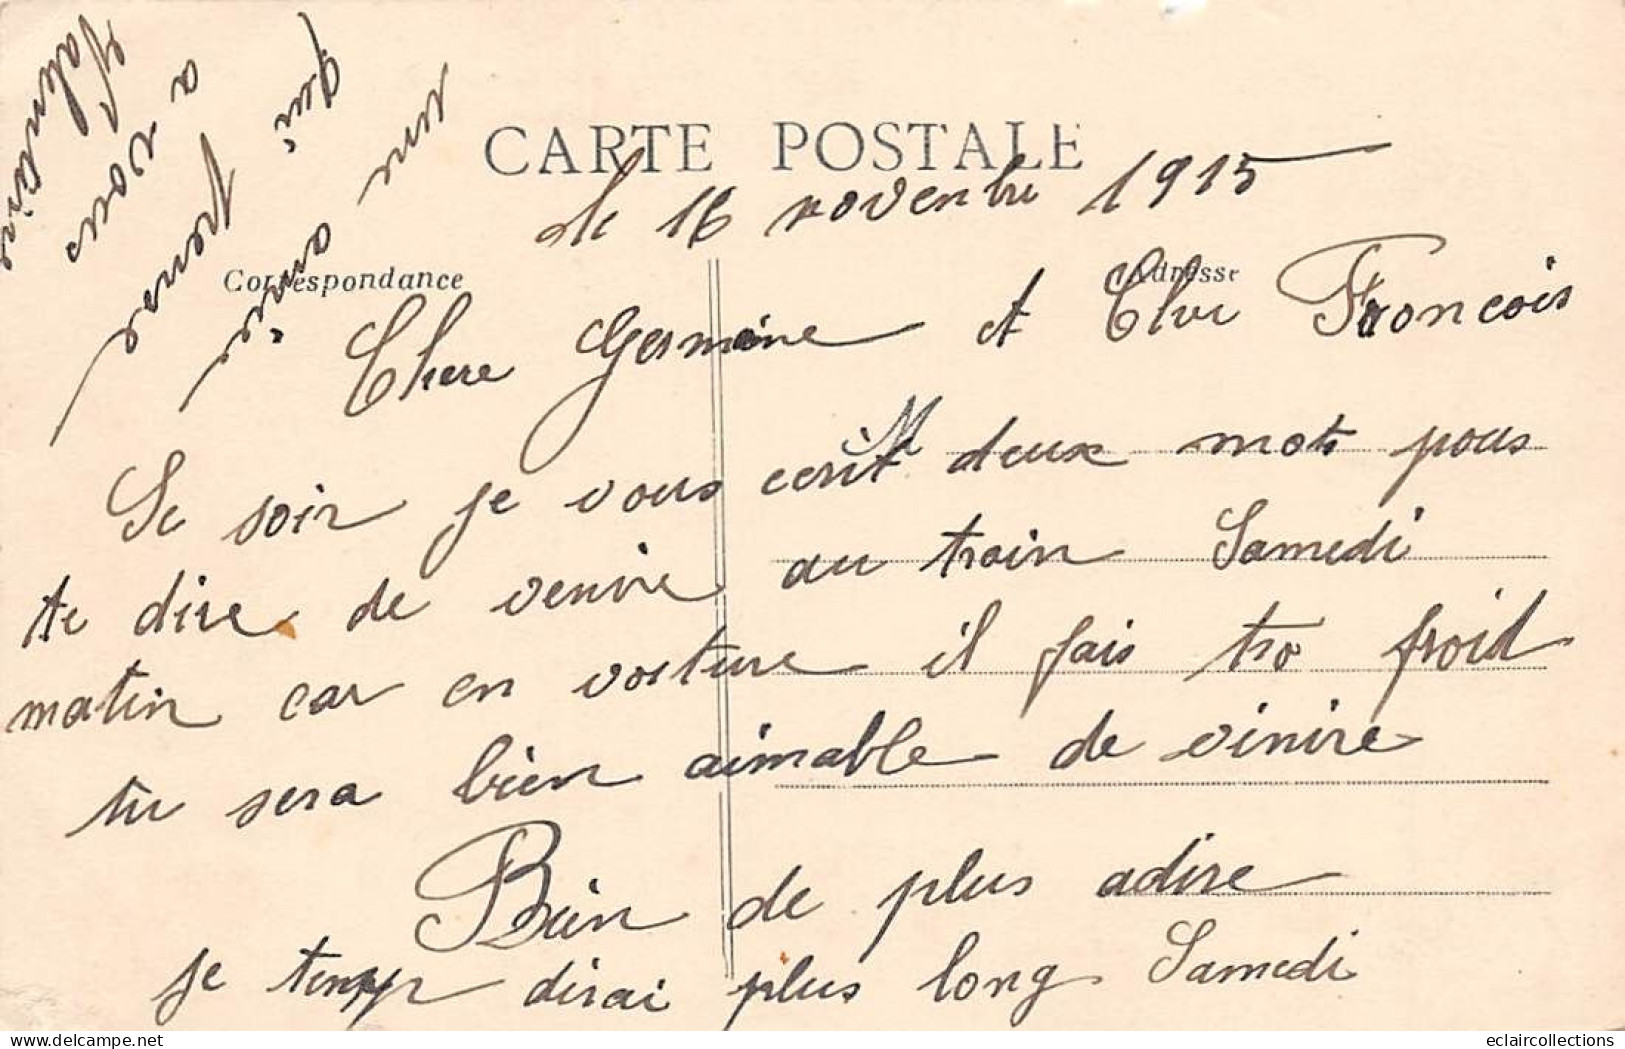 CARTE POSTALE
le 16 novenbre 1915
Correspondance
Adresse
Chere Germaine et Cher Francois
Se soir je vous ecrit deux mots pous
te dire de venire au train Samedi
matin car en voiture il fais tro froid
tu sera bien aimable de vinire
Bien de plus adire
je temp dirai plus long Samedi
une amie
qui pense
a vous
Valentine
eclaircollections